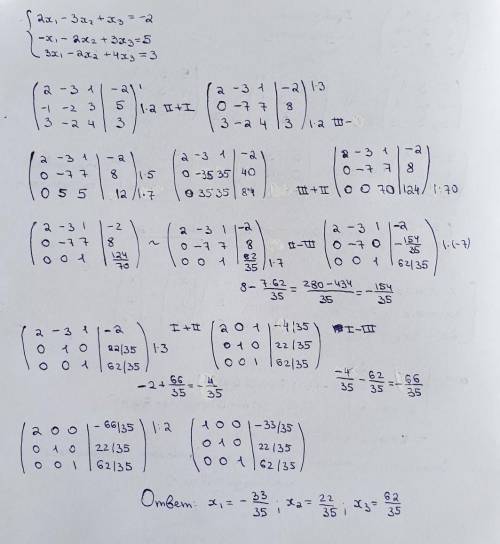 2x₁ - 3x₂ + x₃ = -2
-x₁ - 2x₂ + 3x₃ = 5
3x₁ - 2x₂ + 4x₃ = 3
2 -3 1 | -2
-1 -2 3 | 5 |·2 II+I
3 -2 4 | 3
2 -3 1 | -2 |·3
0 -7 7 | 8
3 -2 4 | 3 |·2 III-
2 -3 1 | -2
0 -7 7 | 8 |·5
0 5 5 | 12 |·7
2 -3 1 | -2
0 -35 35 | 40
0 35 35 | 84 III+II
2 -3 1 | -2
0 -7 7 | 8
0 0 70 | 124 |:70
2 -3 1 | -2
0 -7 7 | 8
0 0 1 | 124/70
~
2 -3 1 | -2
0 -7 7 | 8
0 0 1 | 62/35 |·7
II-III
2 -3 1 | -2
0 -7 0 | -154/35 |:(-7)
0 0 1 | 62/35
8 - 7·62/35 = 280-434/35 = -154/35
2 -3 1 | -2
0 1 0 | 22/35 |·3
0 0 1 | 62/35
I+II
2 0 1 | -4/35
0 1 0 | 22/35
0 0 1 | 62/35
I-III
-2 + 66/35 = -4/35
-4/35 - 62/35 = -66/35
2 0 0 | -66/35 |:2
0 1 0 | 22/35
0 0 1 | 62/35
1 0 0 | -33/35
0 1 0 | 22/35
0 0 1 | 62/35
Ответ: x₁ = -33/35; x₂ = 22/35; x₃ = 62/35